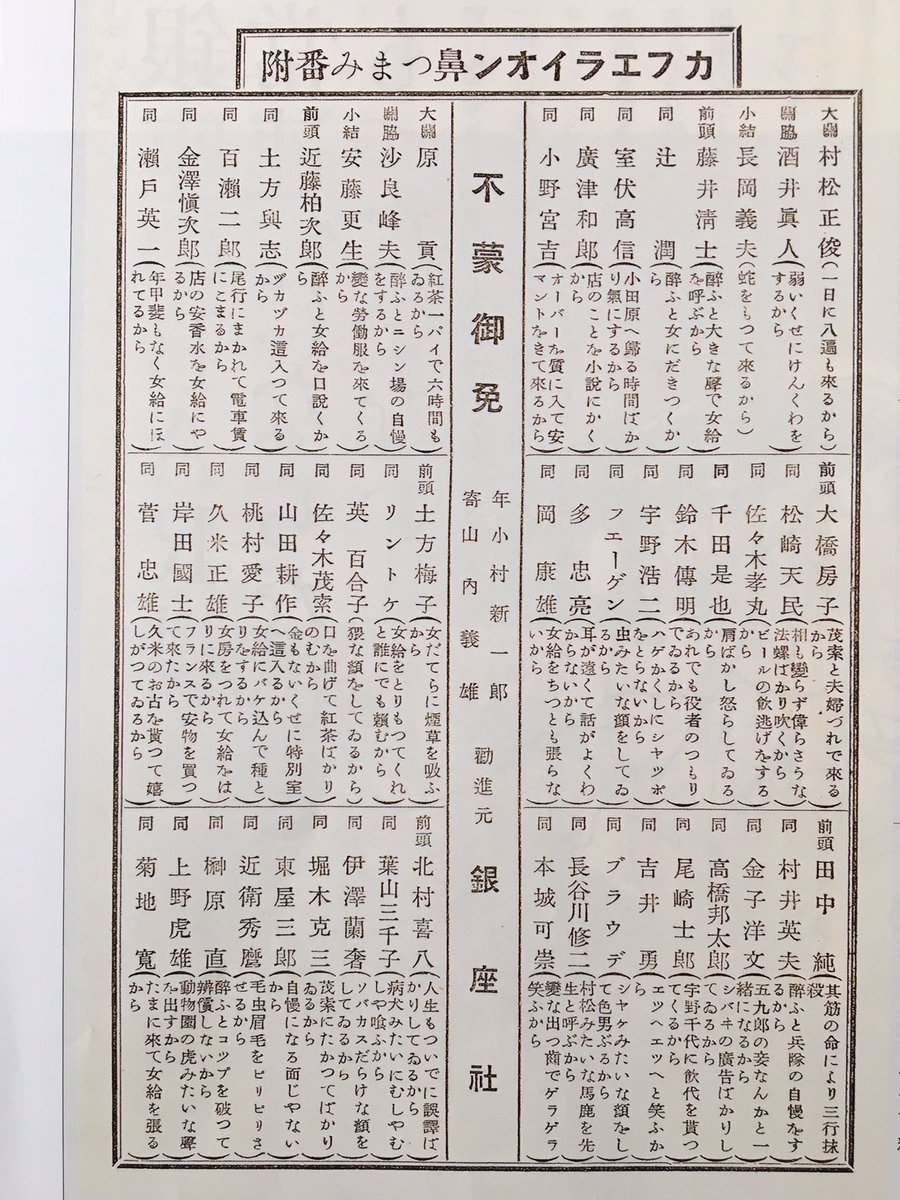 カフエライオン鼻つまみ番附
大關 村松正俊(一日に八遍も來るから)
關脇 酒井眞人(弱いくせにけんくわをするから)
小結 長岡義夫(蛇をもつて來るから)
前頭 藤井淸士(醉ふと大きな聲で女給を呼ぶから)
同 辻潤(醉ふと女にだきつくから)
同 室伏高信(小田原へ歸る時間ばかり氣にするから)
同 廣津和郎(店のことを小説にかくから)
同 小野宮吉(オーバーを質に入て安マントをきて來るから)
前頭 大橋房子(茂索と夫婦づれで來るから)
同 松崎天民(相も變らず偉らさうな法螺ばかり吹くから)
同 佐々木孝丸(ビールの飮逃げをするから)
同 千田是也(肩ばかし怒らしてゐるから)
同 鈴木傳明(あれでも役者のつもりでゐるから)
同 宇野浩二(ハゲかくしにシャッポをとらないから)
同 フエーゲン(虫みたいな顔をしてゐるから)
同 多忠亮(耳が遠くて話がよくわからないから)
同 岡康雄(女給をちつとも張らないから)
前頭 田中純(其筋の命により三行抹殺)
同 村井英夫(醉ふと兵隊の自慢をするから)
同 金子洋文(五九郎の妾なんかと一緒になるから)
同 高橋邦太郎(シバヰの廣告ばかりしてゐるから)
同 尾崎士郎(宇野千代に飮代を貰つてくるから)
同 吉井勇(エツヘエツヘと笑ふから)
同 ブラウデ(シャケみたいな顔をして色男ぶるから)
同 長谷川修二(村松みたいな馬鹿を先生と呼ぶから)
同 本城可崇(變な出つ齒でゲラゲラ笑ふから)
不蒙御免
年寄 小村新一郎
山內義雄
勸進元
銀座社
大關 原貢(紅茶一パイで六時間もゐるから)
關脇 沙良峰夫(醉ふとニシン場の自慢をするから)
小結 安藤更生(變な勞働服を來てくるから)
前頭 近藤柏次郎(醉ふと女給を口説くから)
同 土方與志(ヅカヅカ這入つて來るから)
同 百瀬二郎(尾行にまかれて電車賃にこまるから)
同 金澤愼次郎(店の安香水を女給にやるから)
同 瀬戸英一(年甲斐もなく女給にほれてるから)
前頭 土方梅子(女だてらに煙草を吸ふから)
同 リントケ(女給をとりもつてくれと誰にでも賴むから)
同 英百合子(猥な顔をしてゐるから)
同 佐々木茂索(口を曲げて紅茶ばかりのむから)
同 山田耕作(金もないくせに特別室へ這入るから)
同 桃村愛子(女給にバケ込んで種とりをするから)
同 久米正雄(女房をつれて女給をはりに來るから)
同 岸田國士(フランスで安物を買つて來たから)
同 菅忠雄(久米のお古を貰つて嬉しがつてゐるから)
前頭 北村喜八(人生もついでに誤譯ばかりしてゐるから)
同 葉山三千子(病犬みたいにむしやむしや喰ふから)
同 伊澤蘭奢(ソバカスだらけな顔をしてゐるから)
同 堀木克三(茂索にたかつてばかりゐるから)
同 東屋三郎(自慢になる面じやないから)
同 近衛秀麿(毛虫眉毛をピリピリさせるから)
同 榊原直(醉ふとコツプを破つて辨償しないから)
同 上野虎雄(動物園の虎みたいな聲を出すから)
同 菊地寬(たまに來て女給を張るから)